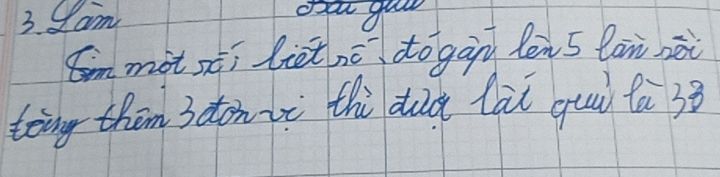 3. Lam
Tìm một số, biết số đó gấp lên 5 lần rồi
tăng thêm 3 đơn vị thì được kết quả là 38